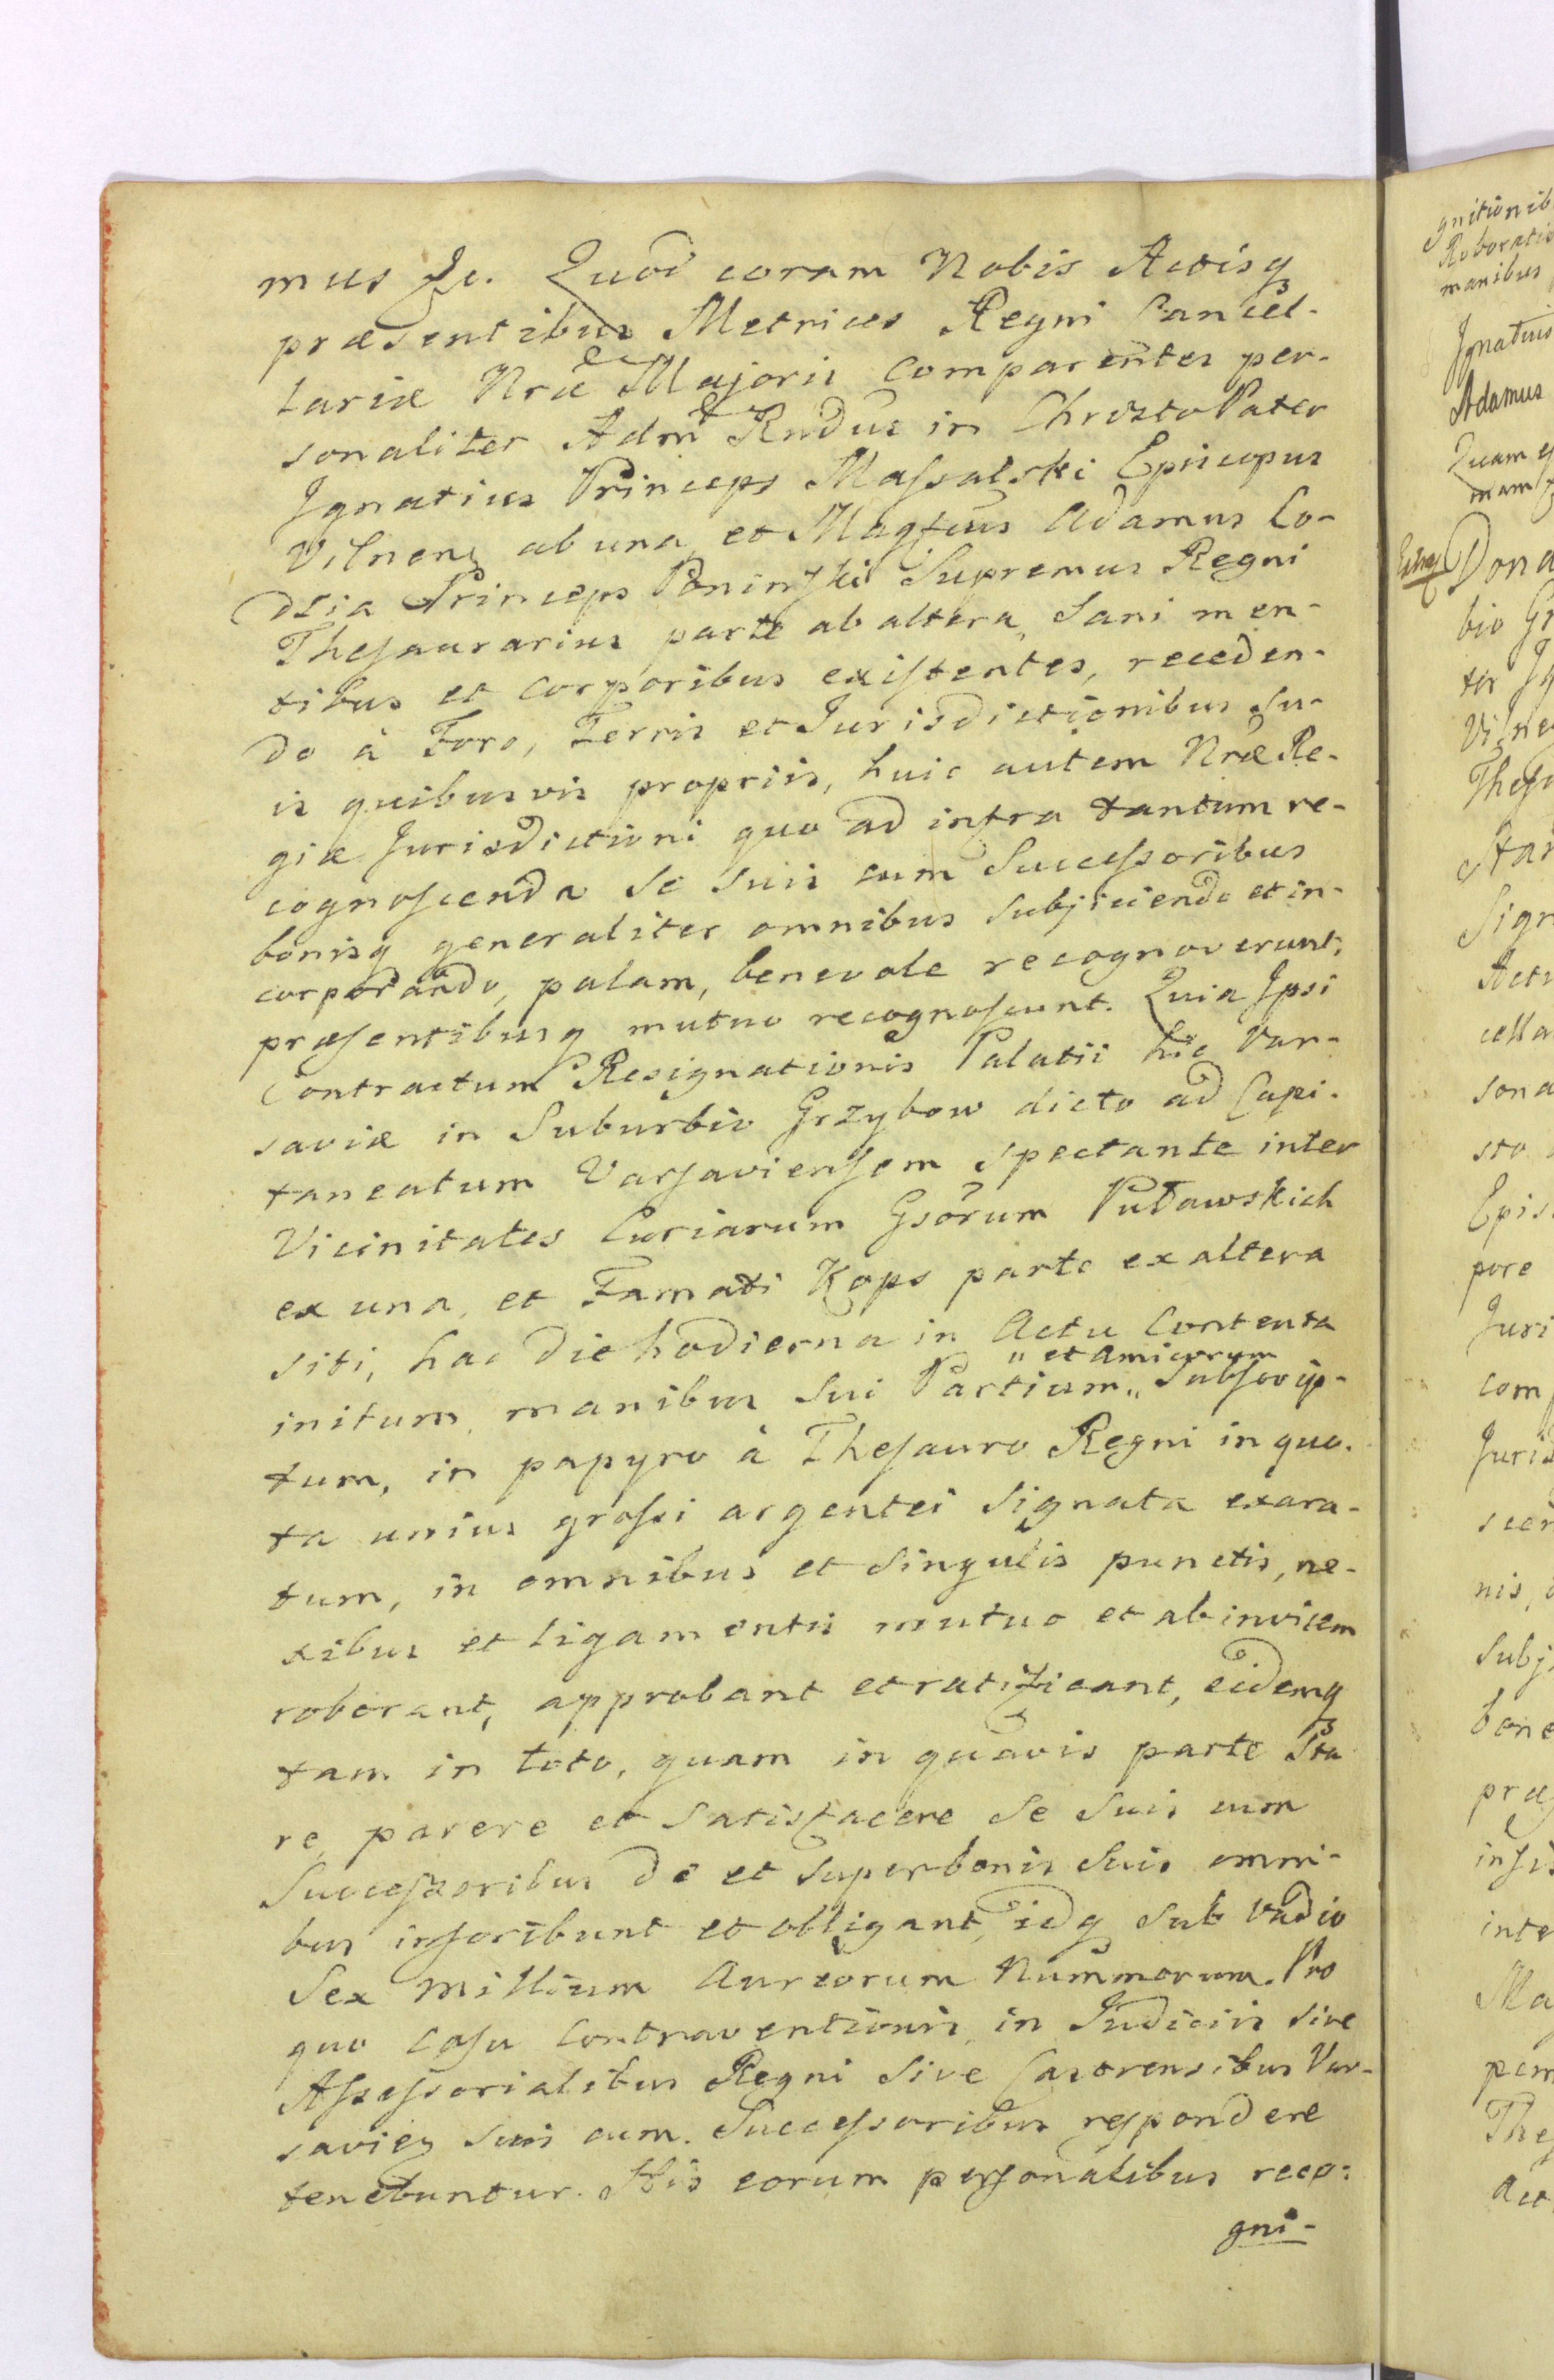 mus &c. Quod coram Nobis Actisq₃
præsentibus Metrices Regni Cancel-
lariæ Nræ Majoris Comparentes per-
sonaliter Adm̃ Rndus in Christo Pater
Ignatius Princeps Massalski Episcopus
Vilnens ab una, et Magfcus Adamus Lo-
dzia Princeps Poninski Supremus Regni
Thesaurarius parte ab altera, Sani men-
tibus et Corporibus existentes, receden-
do à Foro, Terris et Jurisdictionibus Su-
is quibusvis propriis, huic autem Nræ Re-
giæ Jurisdictioni quo ad infra tantum re-
cognoscenda Se Suis cum Successoribus
bonisq generaliter omnibus Subjiciendo et in-
corporando, palam, benevole recognoverunt,
præsentibusq mutuo recognoscunt. Quia Ipsi
Contractum Resignationis Palatii hic Var-
saviæ in Suburbio Grzybow dicto ad Capi-
taneatum Varsaviensem Spectante inter
Vicinitates Curiarum Gsorum Puławskich
ex una, et Famati Kops parte ex altera
siti, hac die hodierna in Actu Contenta
" et Amicorum
initum, manibus Sui Partium " Subscrip-
tum, in papyro à Thesauro Regni in quo-
ta unius grossi argentei Signata exara-
tum, in omnibus et Singulis punctis, ne-
xibus et ligamentis mutuo et ab invicem
roborant, approbant et ratificant, eidemq₃
tam in toto, quam in quavis parte Sta
re, parere et Satisfacere Se Suis cum
Successoribus de et Super bonis Suis omni-
bus inscribunt et obligant, idq Sub Vadio
Sex Millium Aureorum Nummorum. Pro
quo Casu Contraventionis, in Judiciis Sive
Assessorialibus Regni Sive Castrensibus Var-
saviens Suis cum Successoribus respondere
tenebuntur. His eorum personalibus reco-
gni-
gnitionib
Roboratio
manibus
Ignatius
Adamus
Quam
mam
Dona
bio Gr
ter Ig
Vilne
Thesa
Star
Sign
Actu
cella
sona
sto
Epis
pore
Juri
com
Juris
scen
nis,
Subj
bene
præ
insi
inte
Ma
pem
The
Act